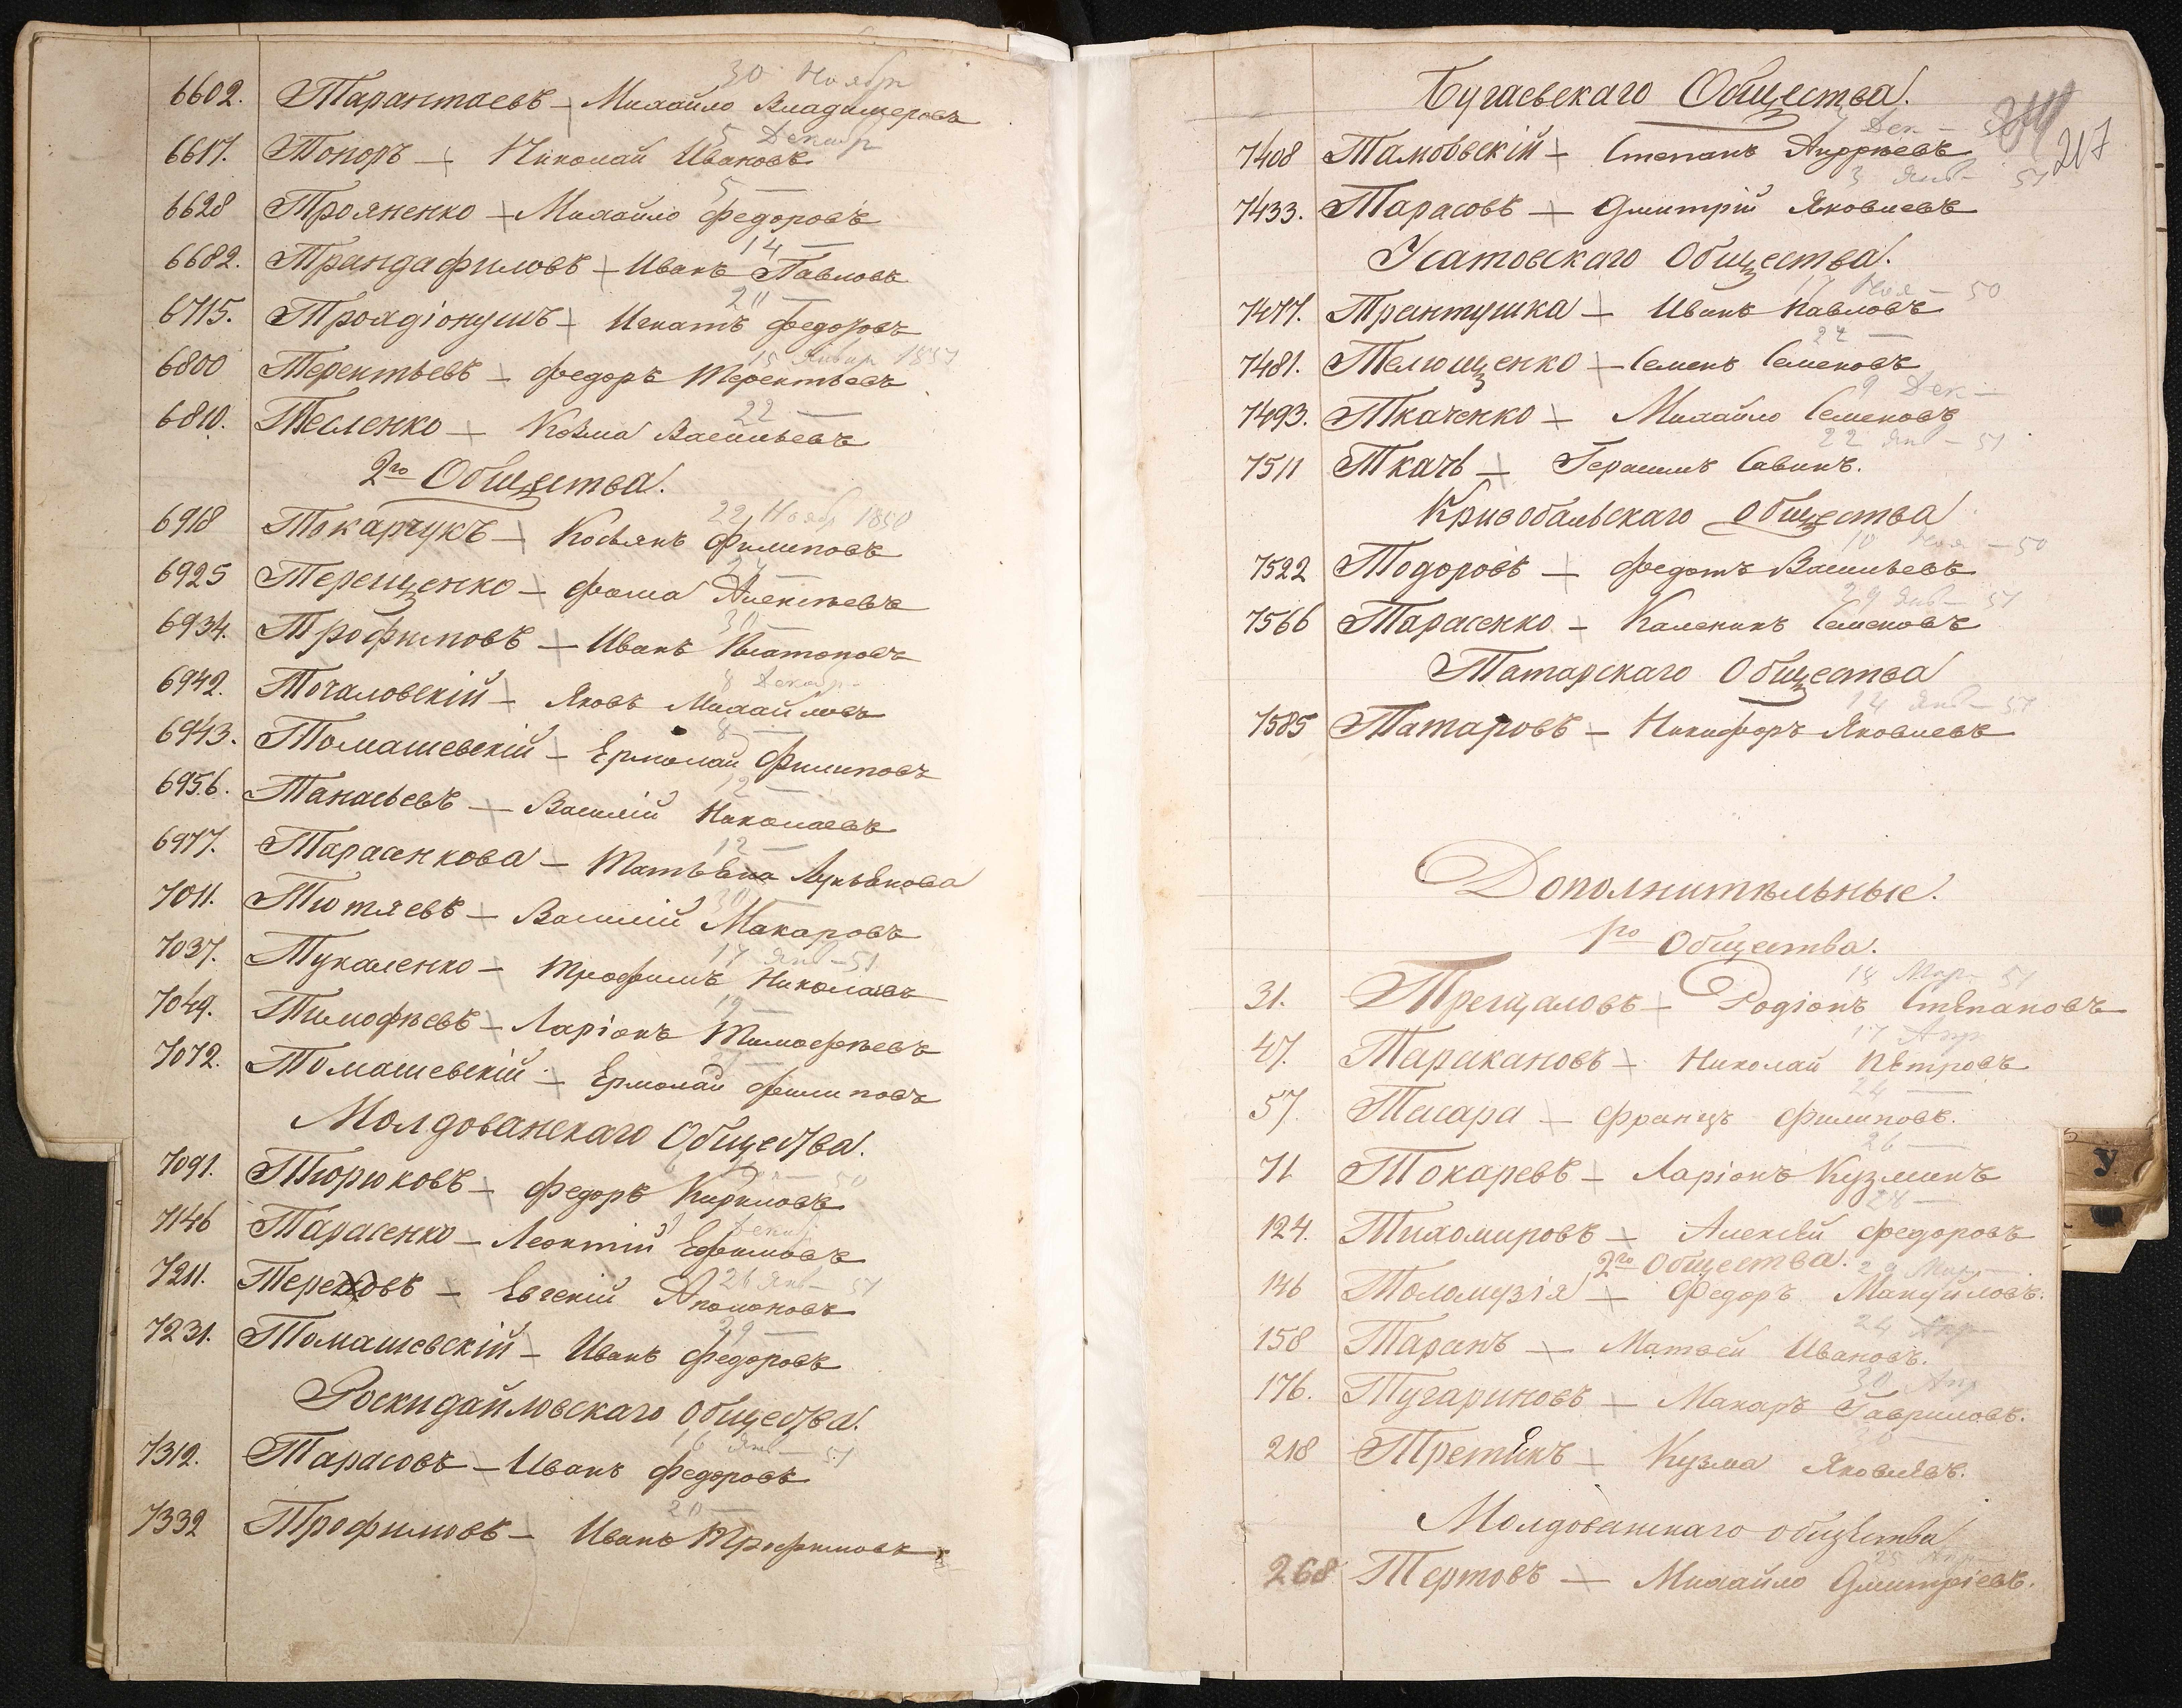 30 Ноябр
6602. Тарантаевъ — Михайло Владимеровъ
5 Декабр
6617. Топоръ — Николай Ивановъ
5 —
6628 Трояненко — Михайло Федоровъ
14 —
6682. Трандафиловъ — Иванъ Павловъ
20 —
6715. Троядіонушъ — Игнатъ Федоровъ
15 Январ 1851
6800 Терентьевъ — Федоръ Терентьевъ
22 —
6810. Тесленко — Козма Васильевъ
2го Общества.
22 Нояб 1850
6918 Токарчукъ — Косьянъ Филиповъ
6925 Терещенко — Фома Алексѣевъ
30 —
6934. Трофимовъ — Иванъ Платоновъ
8 Декабр —
6942. Точаловскій — Яковъ Михайловъ
8 —
6943. Томашевскій — Ермолай Филиповъ
12 —
6956. Танасьевъ — Василій Николаевъ
12 —
6977. Тарасенкова — Татьяна Лукьянова
30 —
7011. Тютяевъ — Василій Макаровъ
17 Янв — 51
7037. Тукаленко — Трофимъ Николаевъ
19 —
7049. Тимофѣевъ — Ларіонъ Тимофѣевъ
7072. Томашевскій — Ермолай Филиповъ
Молдованскаго Общества.
50
7091. Тюрюковъ — Федоръ Кириловъ
Декаб
7146 Тарасенко — Леонтій Ефимовъ
26 Янв — 51
7211. Терековъ — Евгеній Аполоновъ
29 —
7231. Томашевскій — Иванъ Федоровъ
Роскидайловскаго Общества.
16 Янв — 51
7312. Тарасовъ — Иванъ Федоровъ
20 —
7332 Трофимовъ — Иванъ Трофимовъ
Бугаевскаго Общества.
217
Дек —
7408 Тамовскій — Степанъ Андрѣевъ
3 Янв — 51
7433. Тарасовъ — Дмитрій Яковлевъ
Усатовскаго Общества.
17 Ноя — 50
7477. Трантушка — Иванъ Павловъ
24 —
7481. Телющенко — Семенъ Семеновъ
9 Дек —
7493. Ткаченко — Михайло Семеновъ
22 Янв — 51
7511 Ткачь — Герасимъ Савинъ.
Кривобальскаго Общества
10 Ноя — 50
7522 Тодоровъ — Федотъ Васильевъ
29 Янв — 51
7566 Тарасенко — Каленикъ Семеновъ
Татарскаго Общества
14 Янв — 51
7585 Татаровъ — Никифоръ Яковлевъ
Дополнительные.
1го Общества.
18 Мар — 51
31. Трещаловъ — Родіонъ Степановъ
17 Апр
47. Таракановъ — Николай Петровъ
24 —
57. Тасара — Францъ Филиповъ.
26 —
71 Токаревъ — Ларіонъ Кузминъ
28 —
124. Тихомировъ — Алексѣй Федоровъ
2го Общества.
29 Мар —
146 Толомузія — Федоръ Мануйловъ.
24 Апр —
158 Таранъ — Матвей Ивановъ.
30 Апр
176. Тугариновъ — Макаръ Гавриловъ.
218 Третякъ — Кузма Яковлевъ.
Молдованскаго общества
25 Апр
268 Тертовъ — Михайло Дмитріевъ.
У.